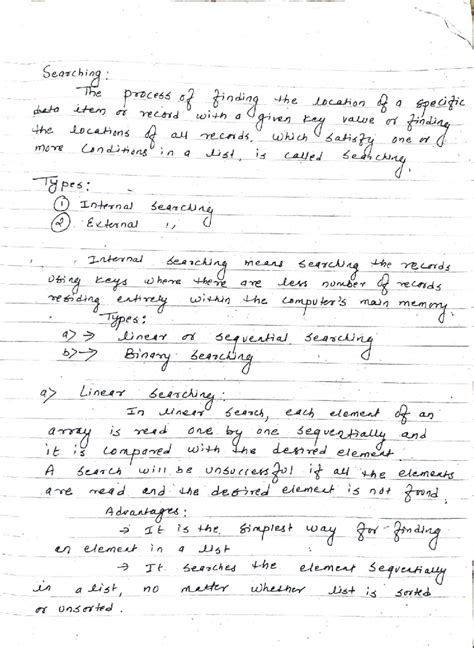 Searching:
The process of finding the location of a specific
data item or record with a given key value or finding
the locations of all records, which satisfy one or
more conditions in a list, is called searching.
Types:
① Internal Searching
② External ,,
Internal searching means searching the records
using keys where there are less number of records
residing entirely within the computer's main memory.
Types:
a) → linear or sequential searching
b) → Binary searching
a) Linear Searching:
In linear search, each element of an
array is read one by one sequentially and
it is compared with the desired element.
A search will be unsuccessful if all the elements
are read and the desired element is not found.
Advantages:
→ It is the simplest way for finding
an element in a list
→ It searches the element sequentially
in a list, no matter whether list is sorted
or unsorted.